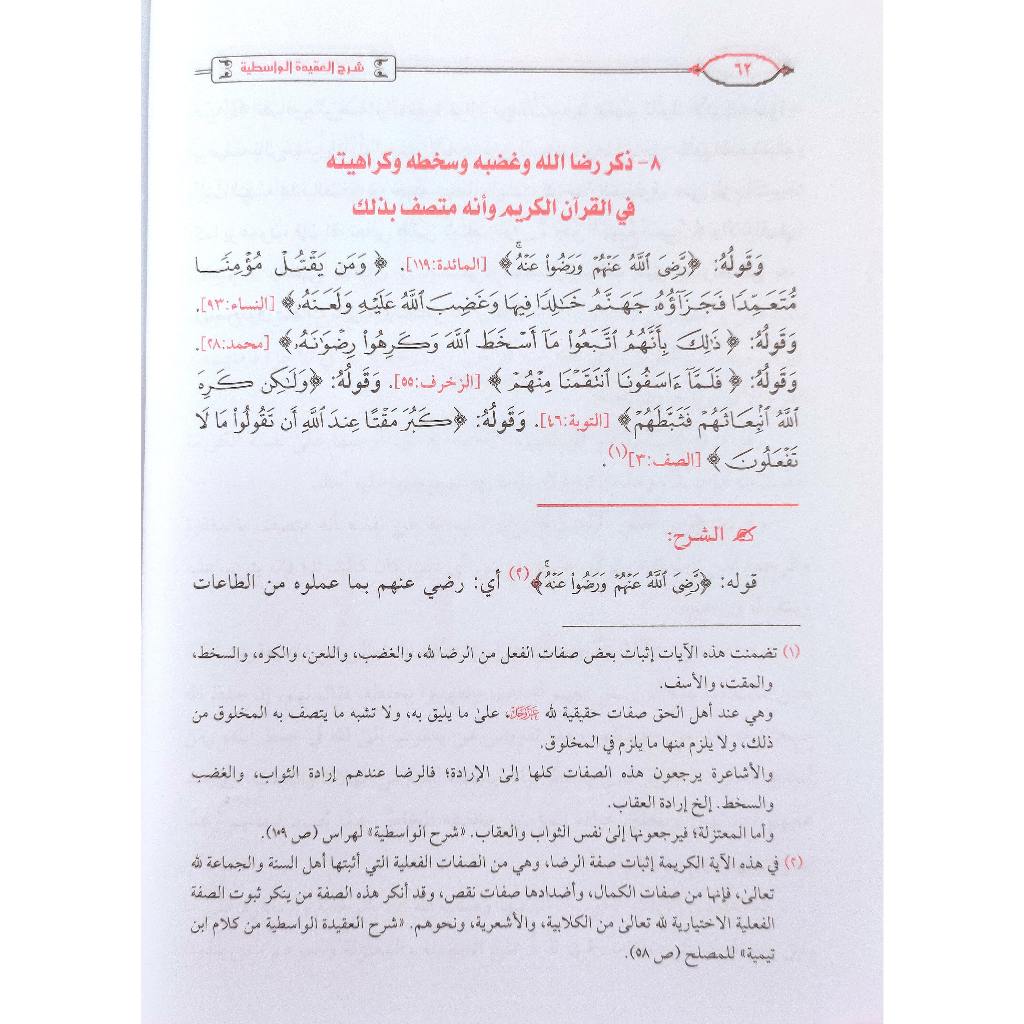 ٦٢
شرح العقيدة الواسطية
٨- ذكر رضا الله وغضبه وسخطه وكراهيته
في القرآن الكريم وأنه متصف بذلك
وَقَولُهُ: ﴿رَّضِيَ ٱللَّهُ عَنۡهُمۡ وَرَضُواْ عَنۡهُۚ﴾ [المائدة:١١٩]. ﴿ وَمَن يَقۡتُلۡ مُؤۡمِنٗا
مُّتَعَمِّدٗا فَجَزَآؤُهُۥ جَهَنَّمُ خَٰلِدٗا فِيهَا وَغَضِبَ ٱللَّهُ عَلَيۡهِ وَلَعَنَهُۥ﴾ [النساء:٩٣].
وَقَولُهُ: ﴿ ذَٰلِكَ بِأَنَّهُمُ ٱتَّبَعُواْ مَآ أَسۡخَطَ ٱللَّهَ وَكَرِهُواْ رِضۡوَٰنَهُۥ﴾ [محمد:٢٨].
وَقَولُهُ: ﴿ فَلَمَّآ ءَاسَفُونَا ٱنتَقَمۡنَا مِنۡهُمۡ ﴾ [الزخرف:٥٥]. وَقَولُهُ: ﴿وَلَٰكِن كَرِهَ
ٱللَّهُ ٱنۢبِعَاثَهُمۡ فَثَبَّطَهُمۡ﴾ [التوبة:٤٦]. وَقَولُهُ: ﴿كَبُرَ مَقۡتًا عِندَ ٱللَّهِ أَن تَقُولُواْ مَا لَا
تَفۡعَلُونَ ﴾ [الصف:٣](١).
الشرح:
قوله: ﴿رَّضِيَ ٱللَّهُ عَنۡهُمۡ وَرَضُواْ عَنۡهُۚ﴾(٢) أي: رضي عنهم بما عملوه من الطاعات
(١) تضمنت هذه الآيات إثبات بعض صفات الفعل من الرضا لله، والغضب، واللعن، والكره، والسخط،
والمقت، والأسف.
وهي عند أهل الحق صفات حقيقية لله عَزَّوَجَلَّ، علىٰ ما يليق به، ولا تشبه ما يتصف به المخلوق من
ذلك، ولا يلزم منها ما يلزم في المخلوق.
والأشاعرة يرجعون هذه الصفات كلها إلىٰ الإرادة؛ فالرضا عندهم إرادة الثواب، والغضب
والسخط. إلخ إرادة العقاب.
وأما المعتزلة؛ فيرجعونها إلىٰ نفس الثواب والعقاب. «شرح الواسطية» لهراس (ص ١٥٩).
(٢) في هذه الآية الكريمة إثبات صفة الرضا، وهي من الصفات الفعلية التي أثبتها أهل السنة والجماعة لله
تعالىٰ، فإنها من صفات الكمال، وأضدادها صفات نقص، وقد أنكر هذه الصفة من ينكر ثبوت الصفة
الفعلية الاختيارية لله تعالىٰ من الكلابية، والأشعرية، ونحوهم. «شرح العقيدة الواسطية من كلام ابن
تيمية» للمصلح (ص ٥٨).